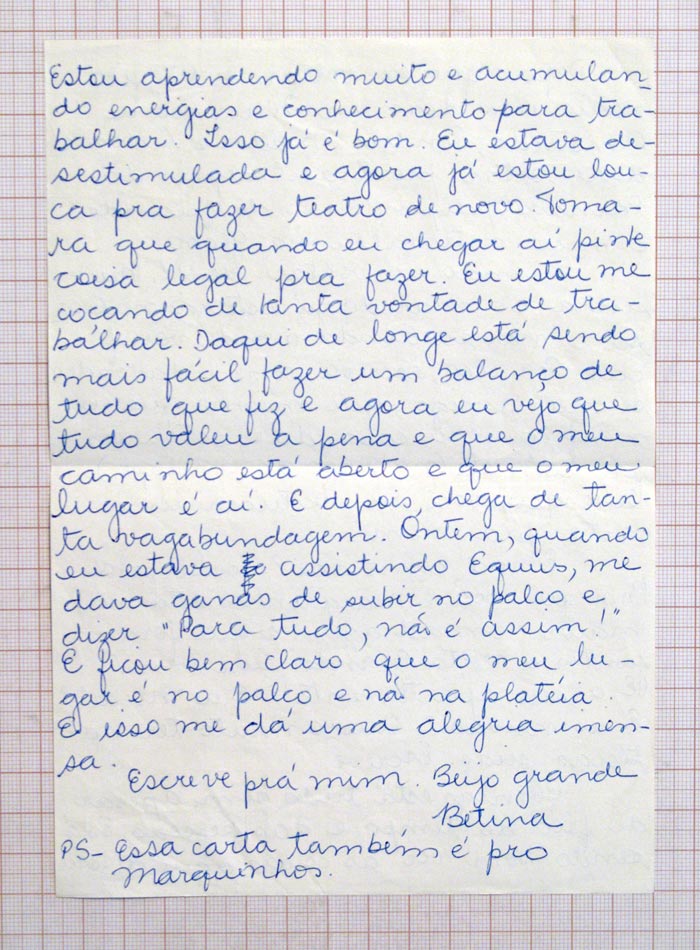 Estou aprendendo muito e acumulan-
do energias e conhecimento para tra-
balhar. Isso já é bom. Eu estava de-
sestimulada e agora já estou lou-
ca pra fazer teatro de novo. Toma-
ra que quando eu chegar aí pinte
coisa legal pra fazer. Eu estou me
coçando de tanta vontade de tra-
balhar. Daqui de longe está sendo
mais fácil fazer um balanço de
tudo que fiz e agora eu vejo que
tudo valeu a pena e que o meu
caminho está aberto e que o meu
lugar é aí. E depois, chega de tan-
ta vagabundagem. Ontem, quando
eu estava assistindo Equus, me
dava ganas de subir no palco e
dizer "Para tudo, não é assim!"
E ficou bem claro que o meu lu-
gar é no palco e não na platéia.
E isso me dá uma alegria imen-
sa.
Escreve prá mim. Beijo grande
Betina
PS- Essa carta também é pro
Marquinhos.